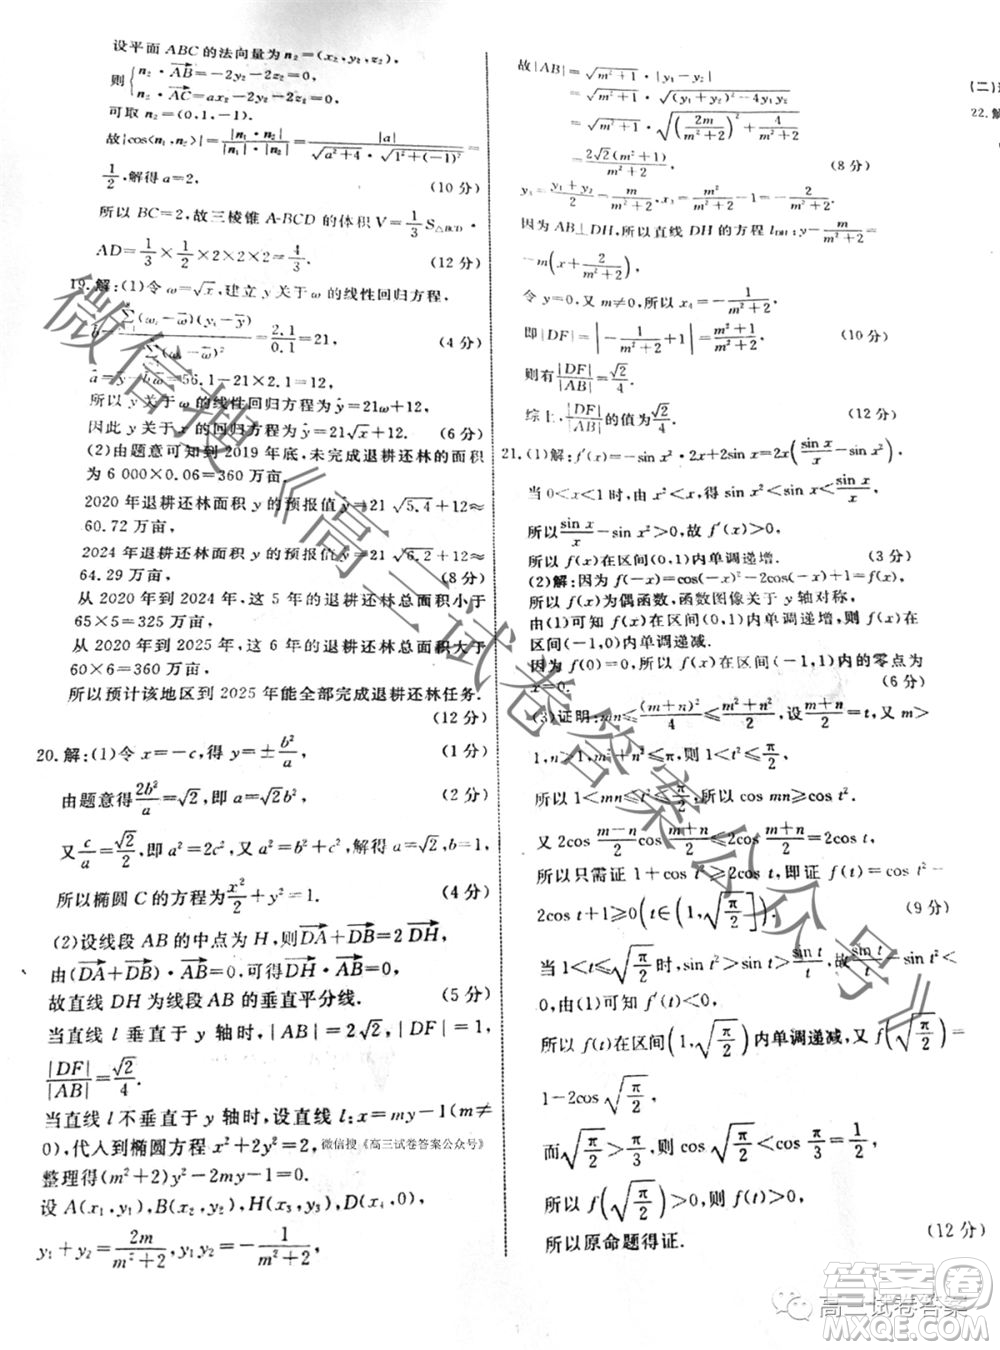 设平面 ABC 的法向量为 n₂=(x₂,y₂,z₂),
则{n₂·AB=-2y₂-2z₂=0,
n₂·AC=ax₂-2y₂-2z₂=0,
可取 n₂=(0,1,-1).
故|cos⟨n₁,n₂⟩|=|n₁·n₂|/(|n₁|·|n₂|)=|a|/(√(a²+4)·√(1²+(-1)²))=
1/2,解得 a=2. (10 分)
所以 BC=2,故三棱锥 A-BCD 的体积 V=1/3 S△BCD·
AD=1/3×1/2×2×2×2=4/3. (12 分)
19.解:(1)令 ω=√x,建立 y 关于 ω 的线性回归方程,
=2.1/0.1=21, (4 分)
=56.1-21×0.1=12,
所以 y 关于 ω 的线性回归方程为 ŷ=21ω+12,
因此 y 关于 x 的回归方程为 ŷ=21√x+12. (6 分)
(2)由题意可知到 2019 年底,未完成退耕还林的面积
为 6 000×0.06=360 万亩,
2020 年退耕还林面积 y 的预报值 ŷ=21√5.4+12≈
60.72 万亩,
2024 年退耕还林面积 y 的预报值 ŷ=21√6.2+12≈
64.29 万亩, (8 分)
从 2020 年到 2024 年,这 5 年的退耕还林总面积小于
65×5=325 万亩,
从 2020 年到 2025 年,这 6 年的退耕还林总面积大于
60×6=360 万亩,
所以预计该地区到 2025 年能全部完成退耕还林任务.
(12 分)
20.解:(1)令 x=-c,得 y=±b²/a, (1 分)
由题意得2b²/a=√2,即 a=√2b², (2 分)
又c/a=√2/2,即 a²=2c²,联立解得 a=√2,b=1.
所以椭圆 C 的方程为x²/2+y²=1. (4 分)
(2)设线段 AB 的中点为 H,则DA+DB=2DH,
由(DA+DB)·AB=0,可得DH·AB=0,
故直线 DH 为线段 AB 的垂直平分线. (5 分)
当直线 l 垂直于 y 轴时,|AB|=2√2,|DF|=1,
|DF|/|AB|=√2/4.
当直线 l 不垂直于 y 轴时,设直线 l:x=my-1(m≠
0),代入到椭圆方程 x²+2y²=2, 微信搜《高三试卷答案公众号》
整理得(m²+2)y²-2my-1=0.
设 A(x₁,y₁),B(x₂,y₂),H(x₃,y₃),D(x₄,0),
y₁+y₂=2m/(m²+2),y₁y₂=-1/(m²+2),
故|AB|=√(m²+1)·|y₁-y₂|
=√(m²+1)·√((y₁+y₂)²-4y₁y₂)
=√(m²+1)·√((2m/(m²+2))²+4/(m²+2))
=2√2(m²+1)/(m²+2). (8 分)
y₃=(y₁+y₂)/2=m/(m²+2),x₃=m²/(m²+2)-1=-2/(m²+2).
因为 AB⊥DH,所以直线 DH 的方程 l_DH:y-m/(m²+2)=
-m(x+2/(m²+2)).
令 y=0,又 m≠0,所以 x₄=-1/(m²+2),
即|DF|=|-1/(m²+2)+1|=(m²+1)/(m²+2), (10 分)
则有|DF|/|AB|=√2/4.
综上,|DF|/|AB|的值为√2/4. (12 分)
21.(1)解:f′(x)=-sin x²·2x+2sin x=2x(sin x/x-sin x²),
当 0<x<1 时,由 x²<x,得 sin x²<sin x<sin x/x,
所以sin x/x-sin x²>0,故 f′(x)>0,
所以 f(x)在区间(0,1)内单调递增. (3 分)
(2)解:因为 f(-x)=cos(-x)²-2cos(-x)+1=f(x),
所以 f(x)为偶函数,函数图像关于 y 轴对称,
由(1)可知 f(x)在区间(0,1)内单调递增,则 f(x)在
区间(-1,0)内单调递减.
因为 f(0)=0,所以 f(x)在区间(-1,1)内的零点为
x=0. (6 分)
(3)证明:mn≤(m+n)²/4≤(m²+n²)/2,设(m+n)/2=t,又 m>
1,n>1,m²+n²≤π,则 1<t²≤π/2,
所以 1<mn≤t²≤π/2,所以 cos mn≥cos t².
又 2cos (m-n)/2 cos (m+n)/2≤2cos (m+n)/2=2cos t,
所以只需证 1+cos t²≥2cos t,即证 f(t)=cos t²-
2cos t+1≥0(t∈(1,√(π/2)]). (9 分)
当 1<t<√(π/2)时,sin t²>sin t>sin t/t,故sin t/t-sin t²<
0,由(1)可知 f′(t)<0,
所以 f(t)在区间(1,√(π/2))内单调递减,又 f(√(π/2))=
1-2cos √(π/2),
而√(π/2)>π/3,所以 cos √(π/2)<cos π/3=1/2,
所以 f(√(π/2))>0,则 f(t)>0,
所以原命题得证. (12 分)
22.解
微信搜《高三试卷答案公众号》
高三试卷答案
答案圈
MXQE.COM